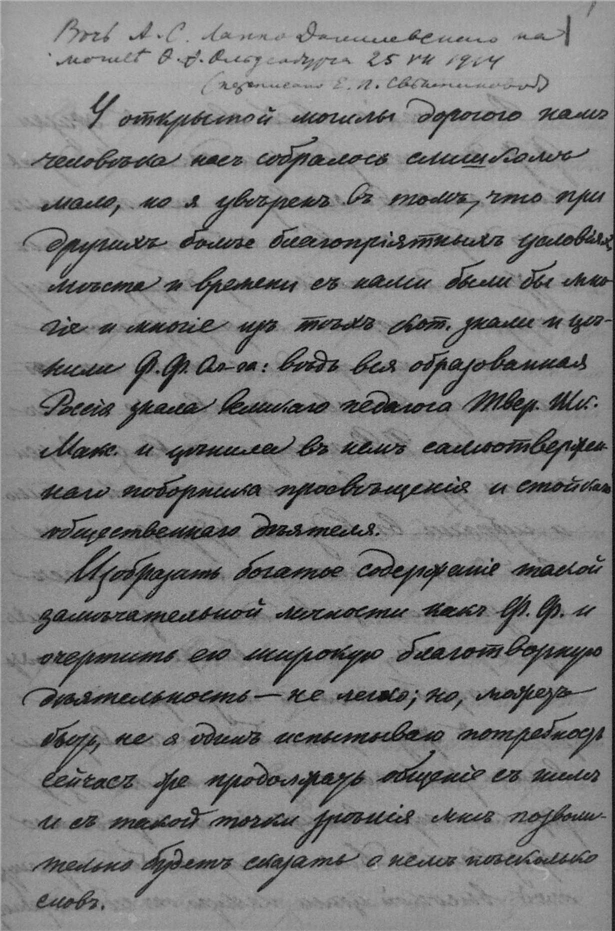 Рѣчь А. С. Лаппо Данилевскаго на
могилѣ Ѳ. Ф. Ольденбурга 25 VII 1914
(переписано Е. П. Свѣшниковой)
У открытой могилы дорогого намъ
человѣка насъ собралось слишкомъ
мало, но я увѣренъ въ томъ, что при
другихъ болѣе благопріятныхъ условіях
мѣста и времени съ нами были бы мно-
гіе и многіе изъ тѣхъ кот. знали и цѣ-
нили Ф. Ф. Ол-га: вѣдь вся образованная
Россія знала великаго педагога Твер. Шк.
Макс. и цѣнила въ немъ самоотвержен-
наго поборника просвѣщенія и стойкаго
общественнаго дѣятеля.
Изобразить богатое содержаніе такой
замѣчательной личности какъ Ф. Ф. и
очертить его широкую благотворную
дѣятельность — не легко; но, можетъ
быть, не я одинъ испытываю потребность
сейчасъ же продолжать общеніе съ нимъ
и съ такой точки зрѣнія мнѣ позволи-
тельно будетъ сказать о немъ нѣсколько
словъ.